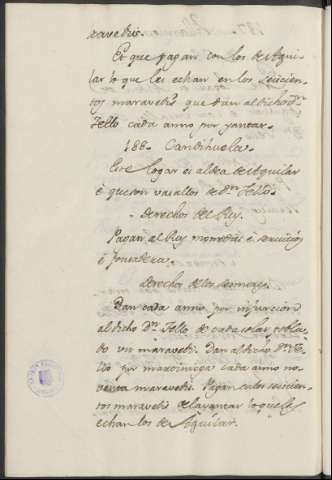 ravedis.
Et que pagan con los de Agui-
lar lo que les echan en los seiscien-
tos maravedis que dan al dicho Dn.
Tello cada anno por yantar.
188. Candihuela.
Este logar es aldea de Aguilar
è que son vasallos de Dn. Tello.
Derechos del Rey.
Pagan al Rey monedas è servicios
è fonsadera.
Derechos de los sennores.
Dan cada anno por infurcion
al dicho Dn. Tello de cada solar pobla-
do un maravedi. Dan al dicho Dn. Te-
llo por martiniega cada anno no-
venta maravedis. Pagan en los seiscien-
tos maravedis de la yantar lo que les
echan los de Aguilar.